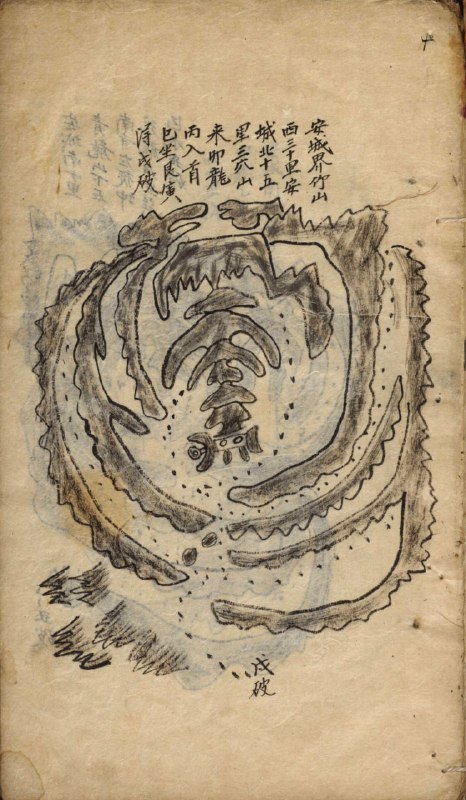 安城界竹山
西三十里安
城北十五
里三爪山
来卯龍
丙入首
巳坐艮寅
得戌破
戌破